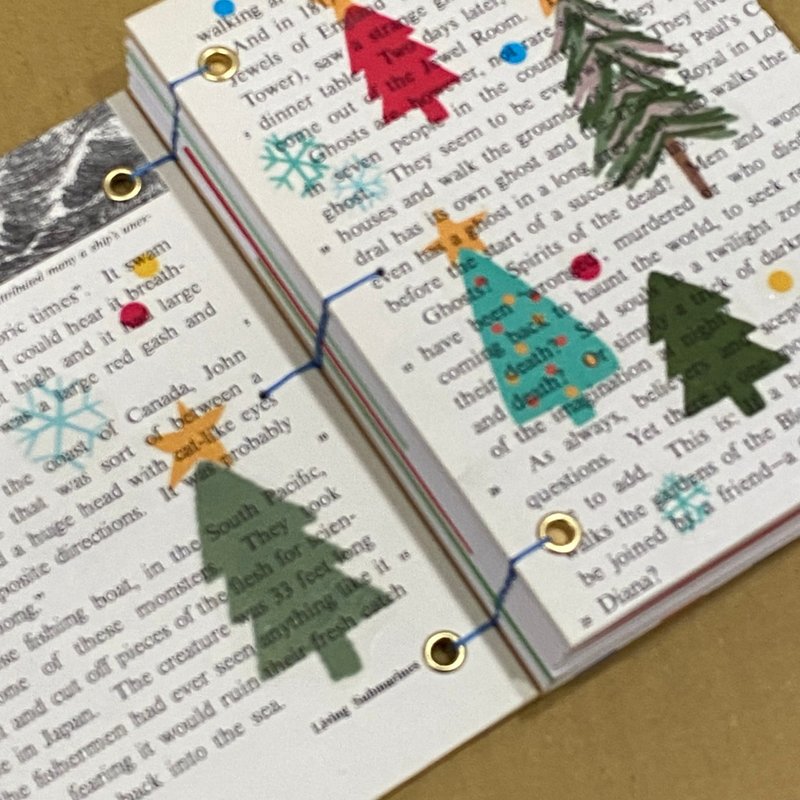 tributed many a ship's unex-
oric times". It swam
I could hear it breath-
t high and it had large
was a large red gash and
the coast of Canada, John
that was sort of between a
d a huge head with cat-like eyes
posite directions. It was probably
long."
se fishing boat, in the South Pacific,
ome of these monsters. They took
t and cut off pieces of the flesh for scien-
e in Japan. The creature was 33 feet long
he fishermen had ever seen anything like it
fearing it would ruin their fresh catch
back into the sea.
Living Submarines
walking
And in 18
Jewels of England
Tower), saw a strange
dinner table. Two days later,
come out of the Jewel Room.
Ghosts are, however, not rare
in seven people in the country
ghost. They seem to be every
houses and walk the grounds
dral has its own ghost and
even has a ghost in a long
before the start of a succe
Ghosts: Spirits of the dead?
have been murdered or who died
coming back to haunt the world, to seek
their death? Sad souls in a twilight zone
and death? or simply a trick of dark
of the imagination at night
As always, believers and scept
questions. Yet there is one
to add. This is:
walks the gardens of the Big
be joined by a friend—a
Diana?
They live
St Paul's C
Royal in Lo
walks the
den and wom